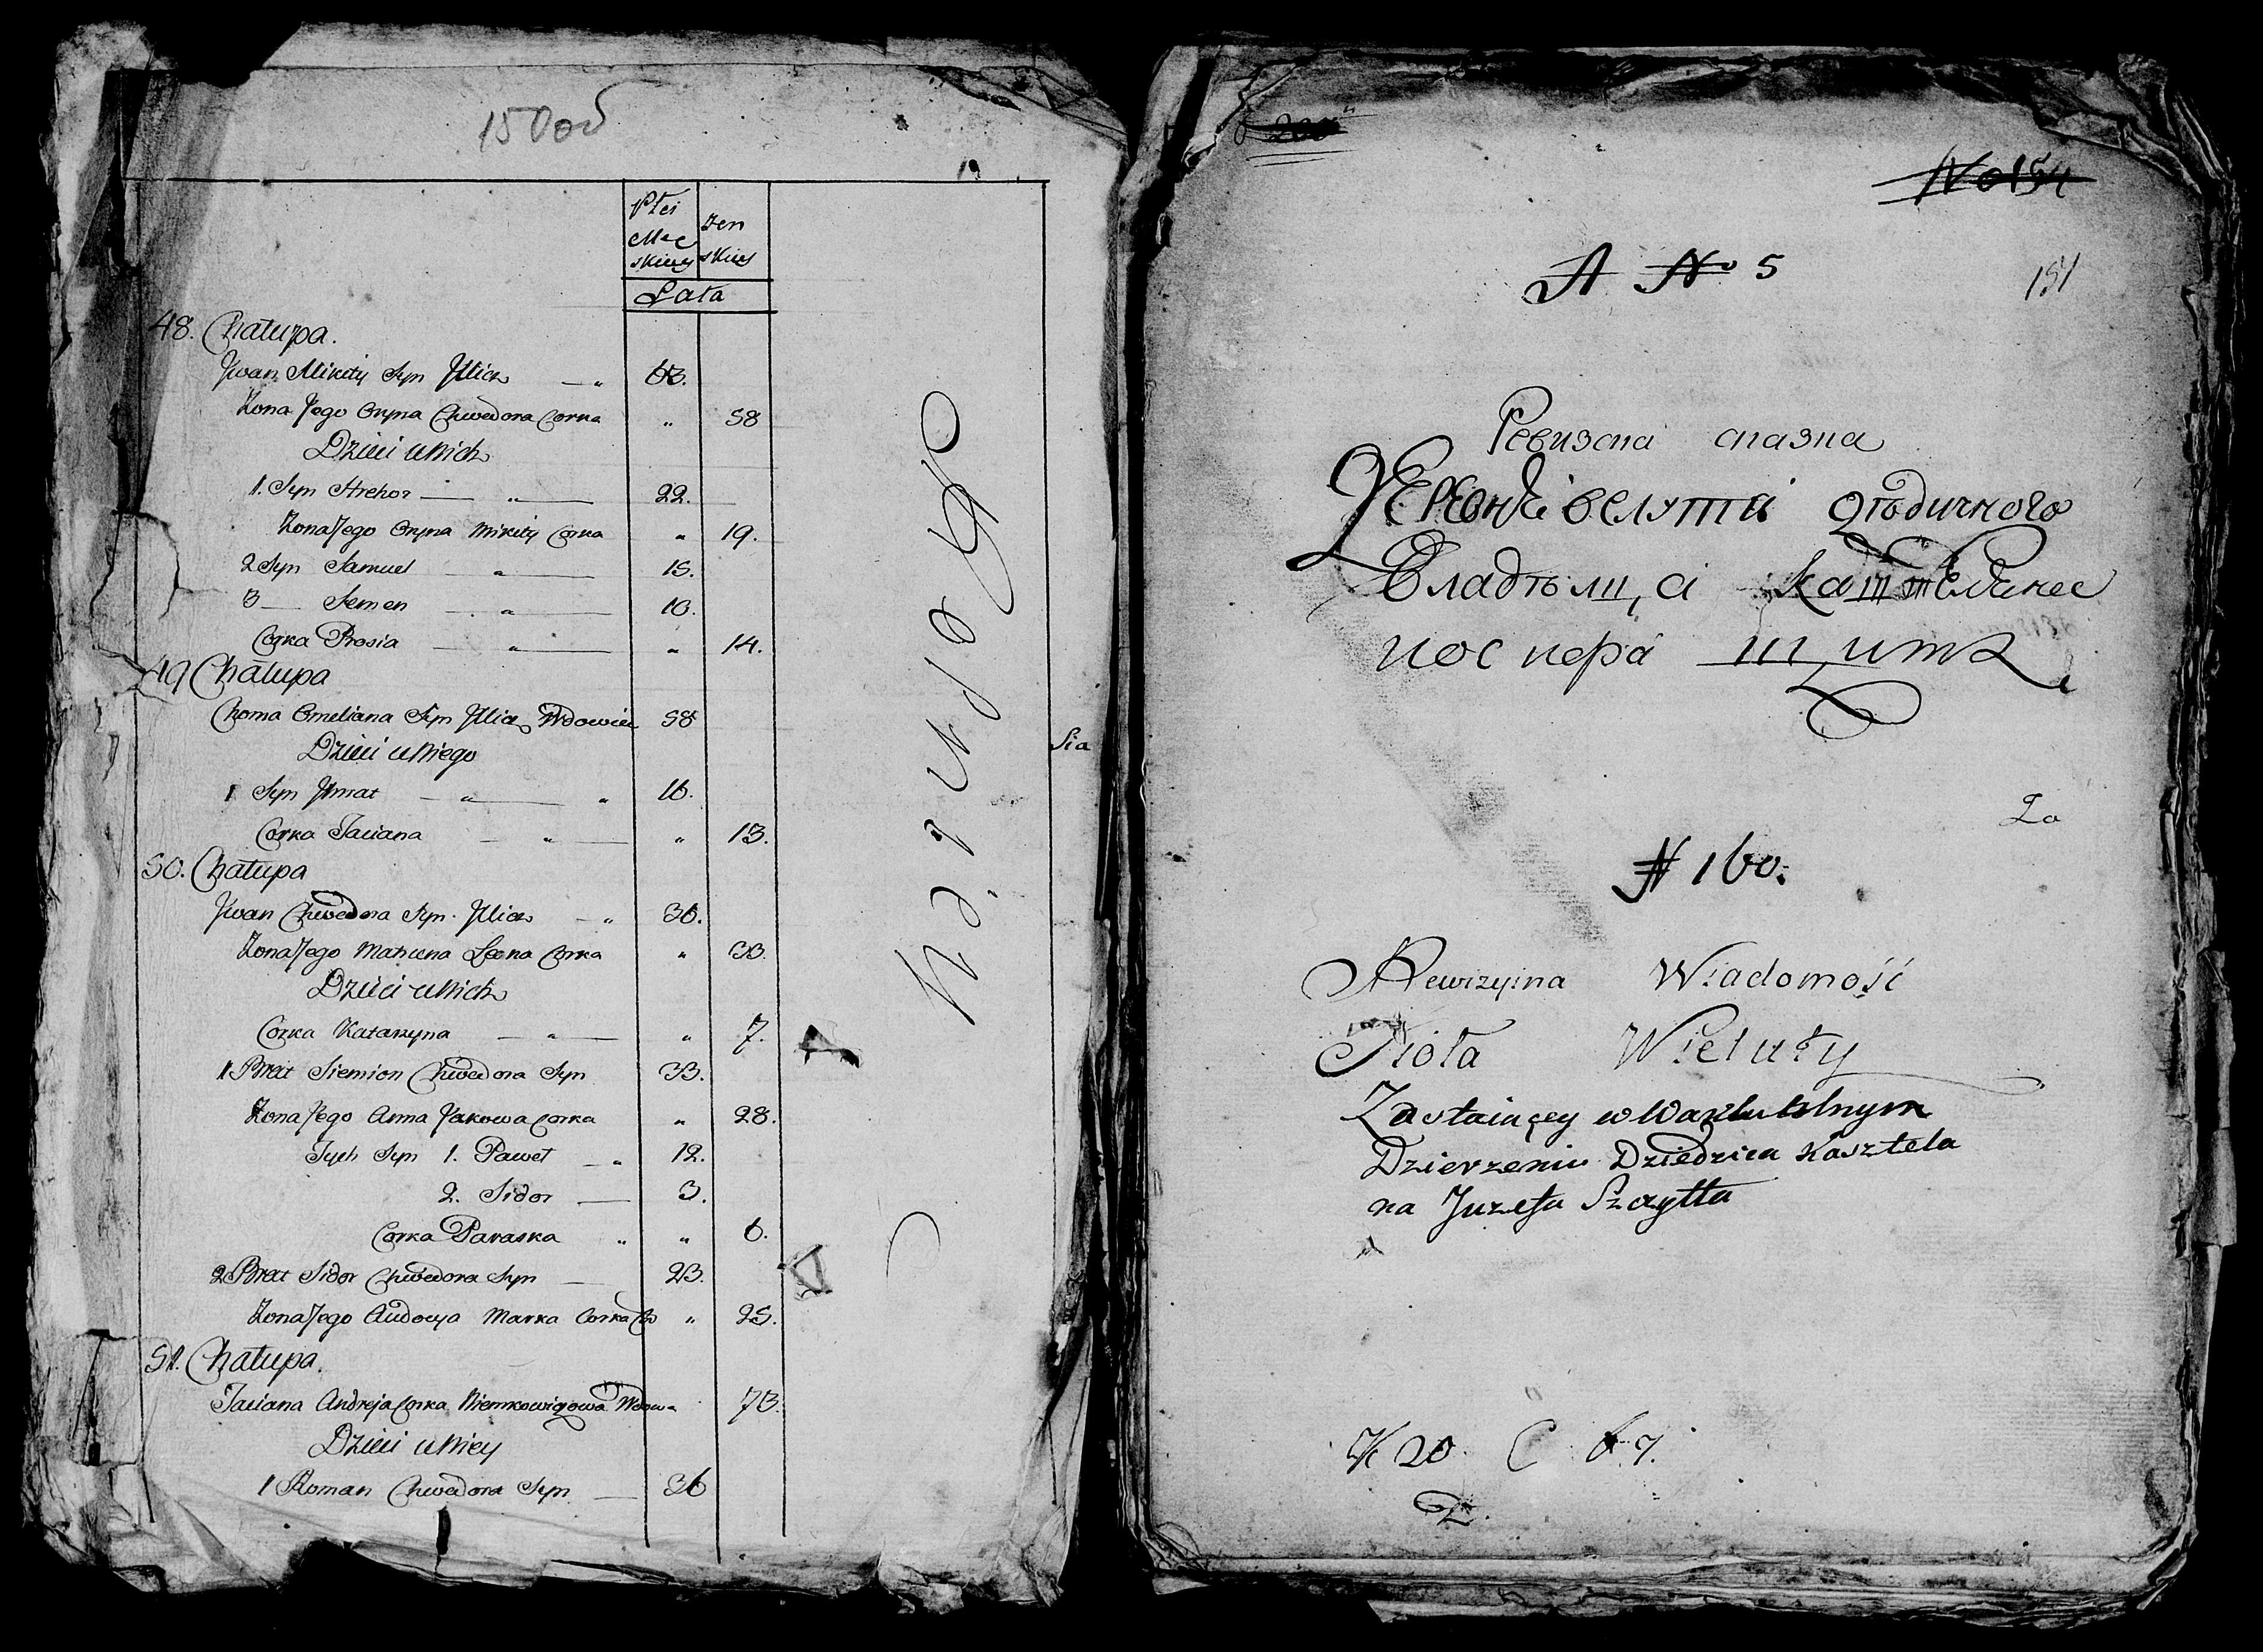 150об
Płci
Mę
skiey
żen
skiey
Lata
48. Chałupa.
Jwan Mikity Syn Jllicz — „ 63.
Żona Jego Oryna Chwedora Corka „ 58
Dzieci u Nich
1. Syn Hrehor — „ — 22.
Żona Jego Oryna Mikity Corka „ 19.
2 Syn Samuel — „ — 15.
3 — Semen — „ — 10.
Corka Prosia — „ — „ 14.
49 Chałupa
Choma Omeliana Syn Jllicz Wdowiec 58
Dzieci u Niego
1 Syn Jhnat — „ — „ 16.
Corka Taciana — „ — „ 13.
50. Chałupa
Jwan Chwedora Syn Jllicz — „ 36.
Żona Jego Matruna Leona Corka „ 33.
Dzieci u Nich
Corka Katarzyna — „ — „ 7.
1 Brat Siemion Chwedora Syn 33.
Żona Jego Anna Jakowa Corka „ 28.
Tych Syn 1. Paweł — „ 12.
2. Sidor — 3.
Corka Paraska „ „ 6.
2 Brat Sidor Chwedora Syn — 23.
Żona Jego Audocya Marka Corka „ 25.
51. Chałupa.
Taciana Andreja Corka Niemkowiczowa Wdowa 73.
Dzieci u Niey
1 Roman Chwedora Syn — 36
Sia
No 154
A No 5
151
Ревизска сказка
Деревни велути
Владѣлца
пос пера щита
N 160.
Rewizyina Wiadomość
Sioła Wieluty
Zostaiącey w
Dzierzeniu Dziedzica Kasztela
na Juzefa Szczytta
K 20. C 67.